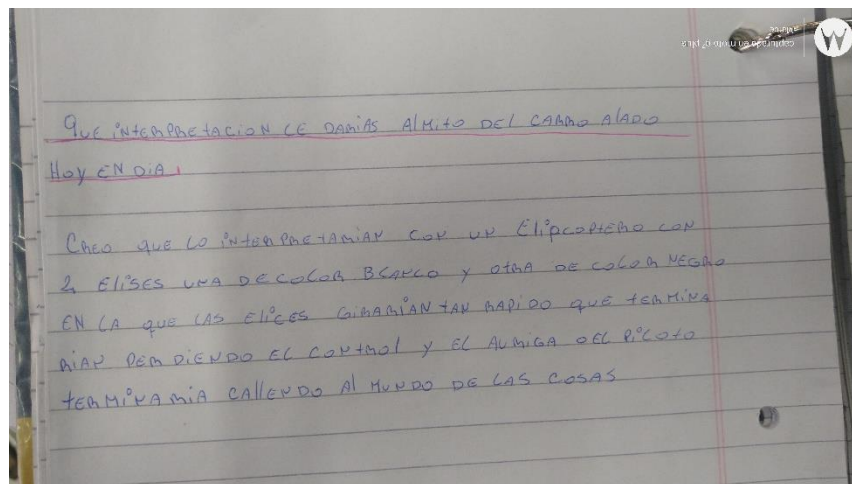 QUE INTERPRETACION LE DARIAS AL MITO DEL CARRO ALADO
HOY EN DIA
CREO QUE LO INTERPRETARIAN CON UN ELIPCOPTERO CON
2 ELISES UNA DE COLOR BLANCO Y OTRA DE COLOR NEGRO
EN LA QUE LAS ELICES GIRARIAN TAN RAPIDO QUE TERMINA
RIAN PERDIENDO EL CONTROL Y EL AURIGA O EL PILOTO
TERMINARIA CALLENDO AL MUNDO DE LAS COSAS